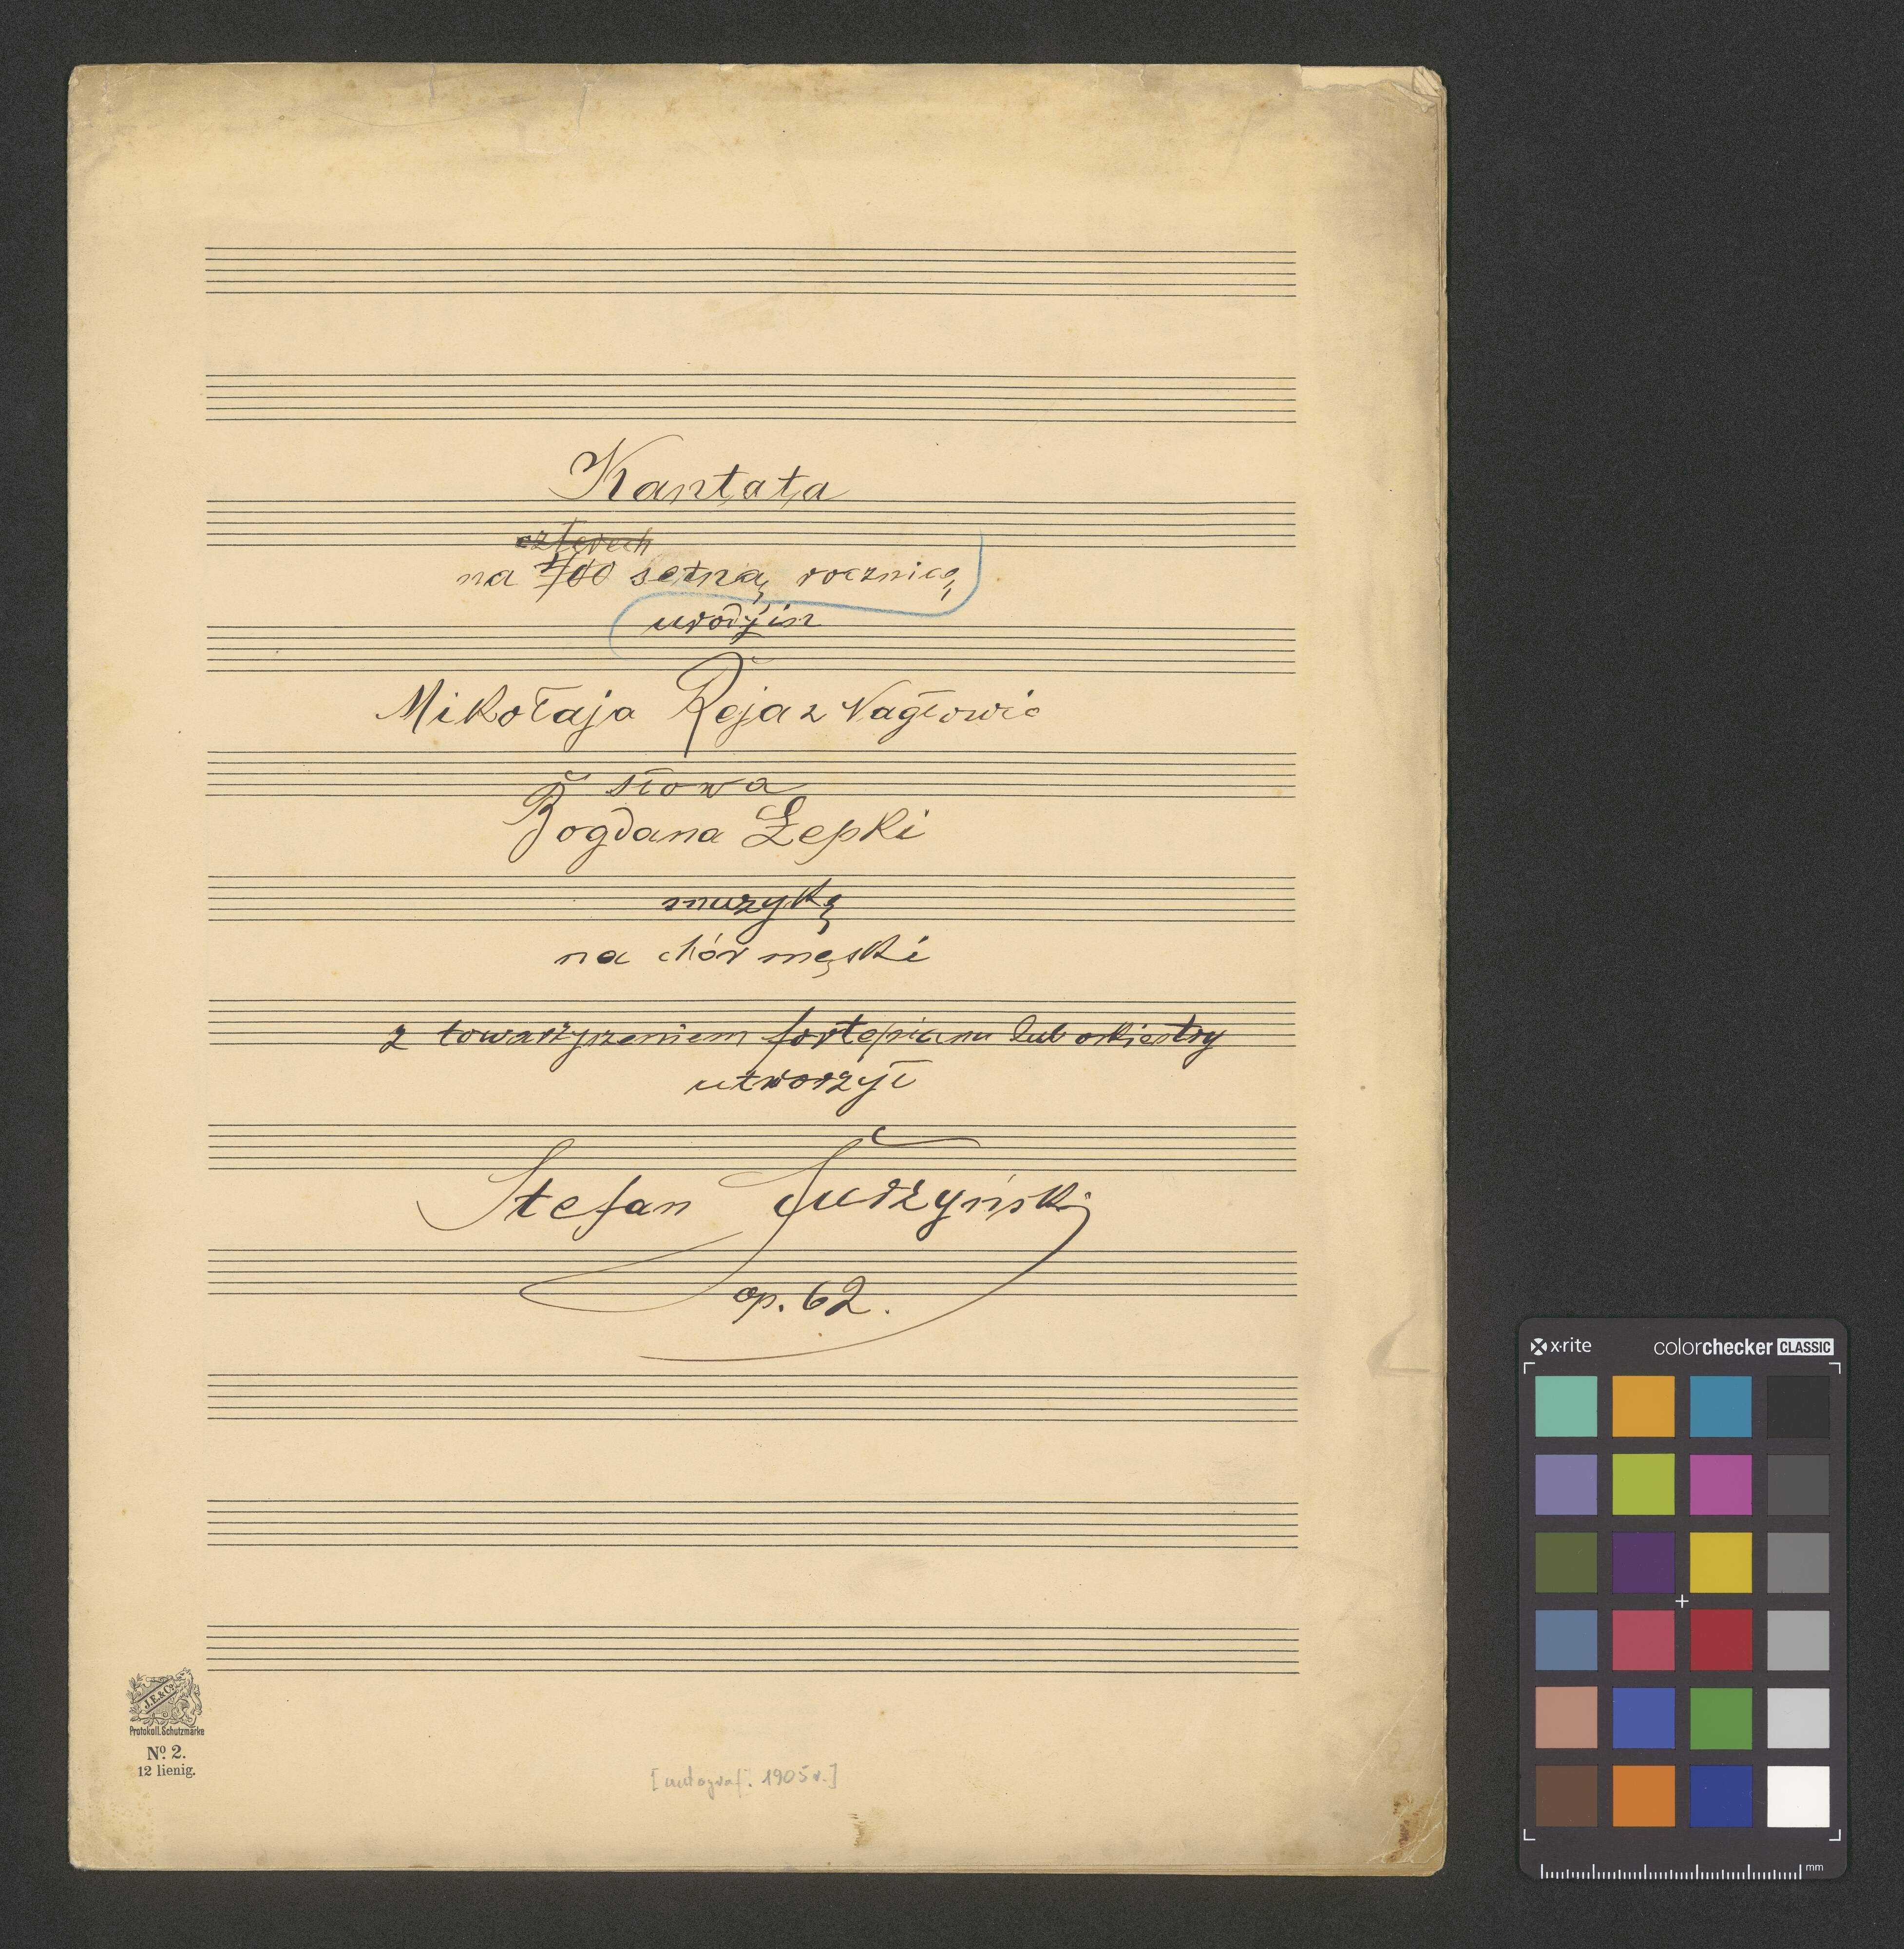 Kantata
czterech
na 400 setną rocznicę
urodzin
Mikołaja Reja z Nagłowic
słowa
Bogdana Łepki
muzykę
na chór męski
z towarzyszeniem fortepianu lub orkiestry
utworzył
Stefan Surzyński
op. 62.
J.E. & Co.
Protokoll. Schutzmarke
No. 2.
12 lienig.
[autograf. 1905 r.]
x·rite colorchecker CLASSIC
mm